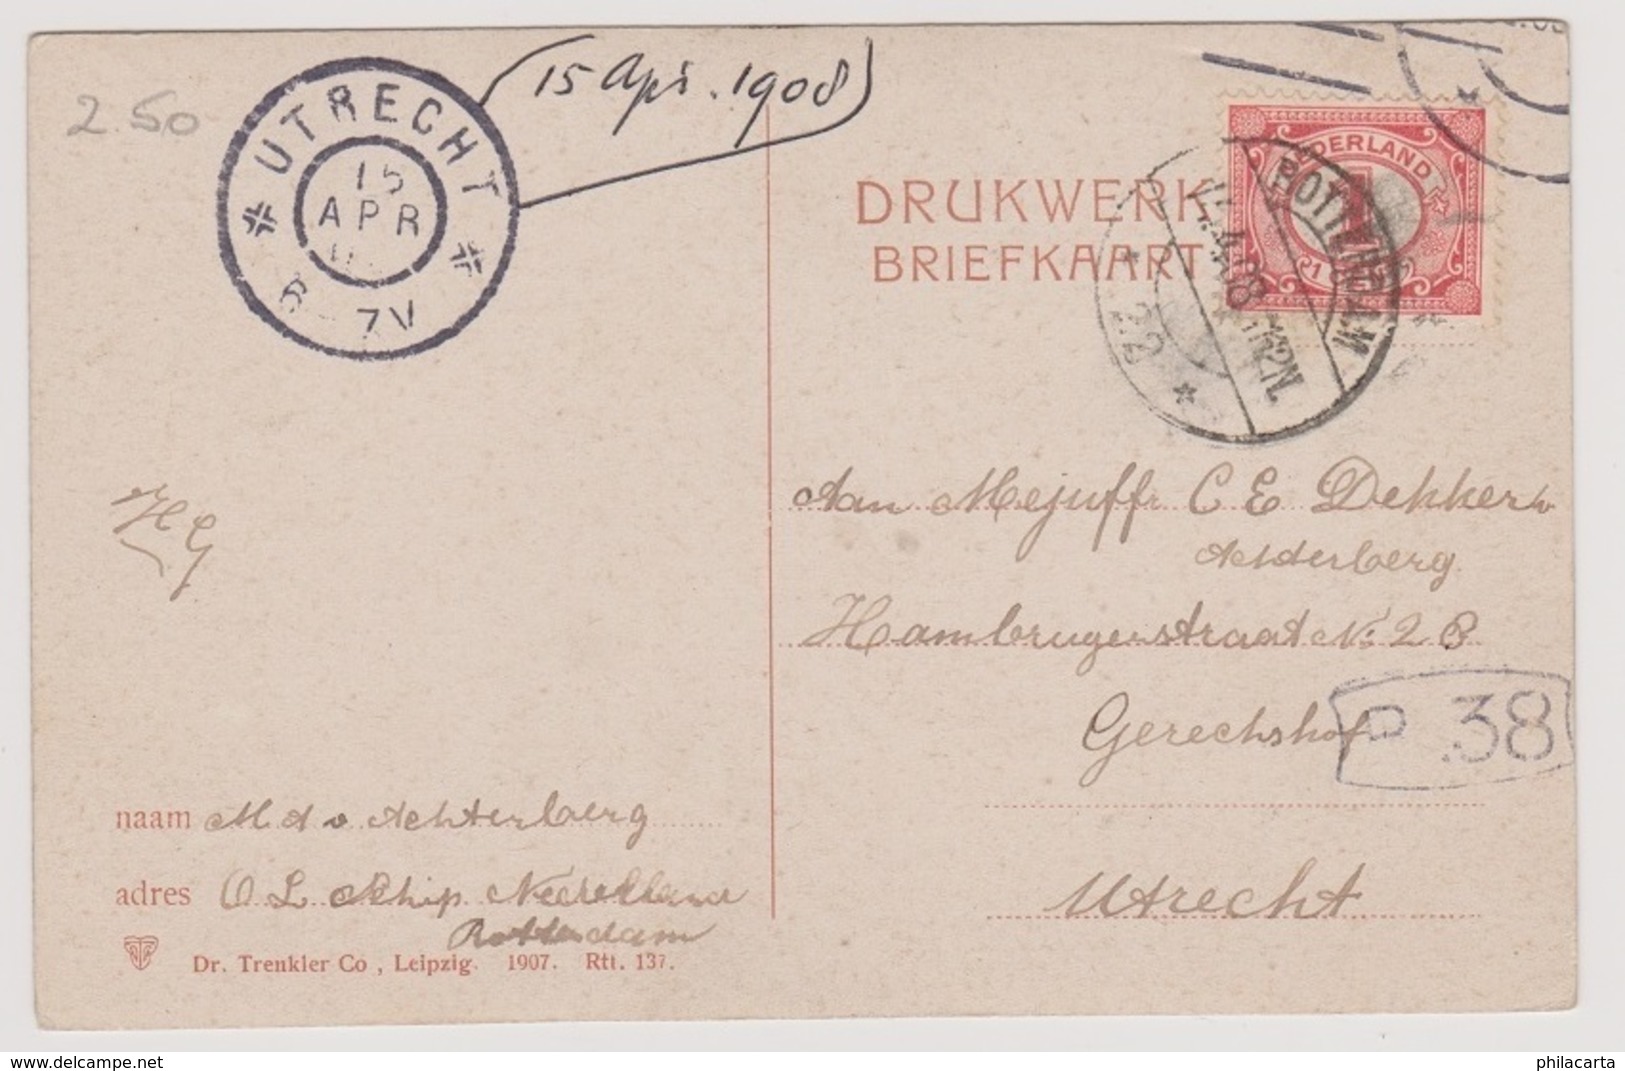 2.50
UTRECHT
15
APR
6-7V
(15 Apr. 1908)
DRUKWERK
BRIEFKAART
NEDERLAND
1
ROTTERDAM
22
HG
Aan Mejuffr C E Dekker v
Achterberg
Hamburgerstraat No 28
Gerechshof
P.38
Utrecht
naam M A v Achterberg
adres O L Schip Nederland
Rotterdam
Dr. Trenkler Co, Leipzig. 1907. Rtt. 137.
philacarta